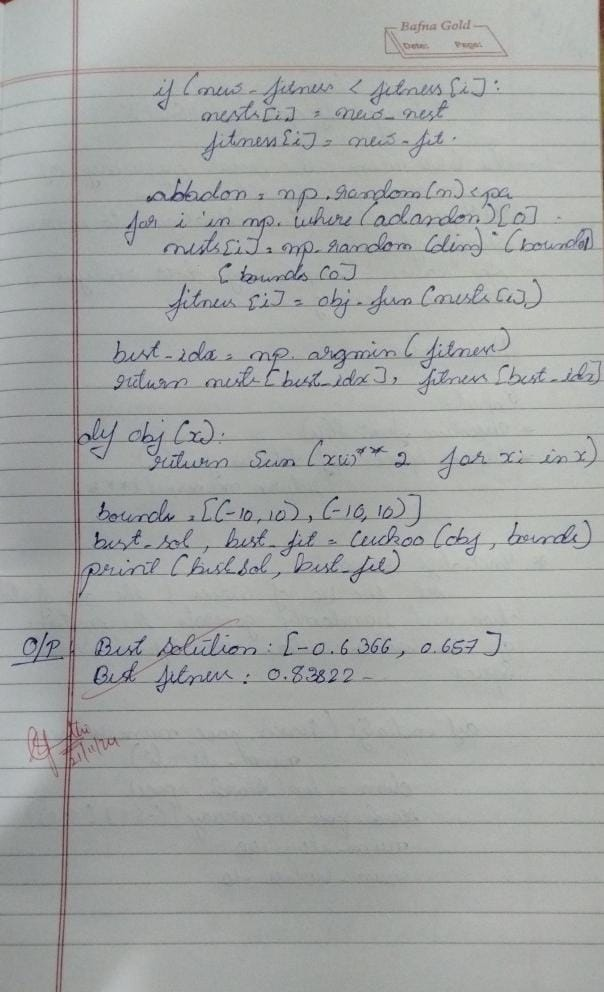 Bafna Gold
Date: Page:
if (new-fitness < fitness[i]:
nests[i] = new-nest
fitness[i] = new-fit.
abbadon = np.random(n) < pa
for i in np. where (adandon)[0].
nests[i] = np.random (dim) * (bounds
[bounds [0]
fitness [i] = obj-fun (nests [i],)
best-idx = np. argmin (fitness)
return nests [best-idx], fitness [best-idx]
def obj (x):
return sum (xi)**2 for xi in x)
bounds = [(-10,10), (-10,10)]
best-sol, best-fit = Cuckoo (obj, bounds)
print (best sol, best-fit)
O/P: Best solution: [-0.6366, 0.657]
Best fitness: 0.83822
21/11/24